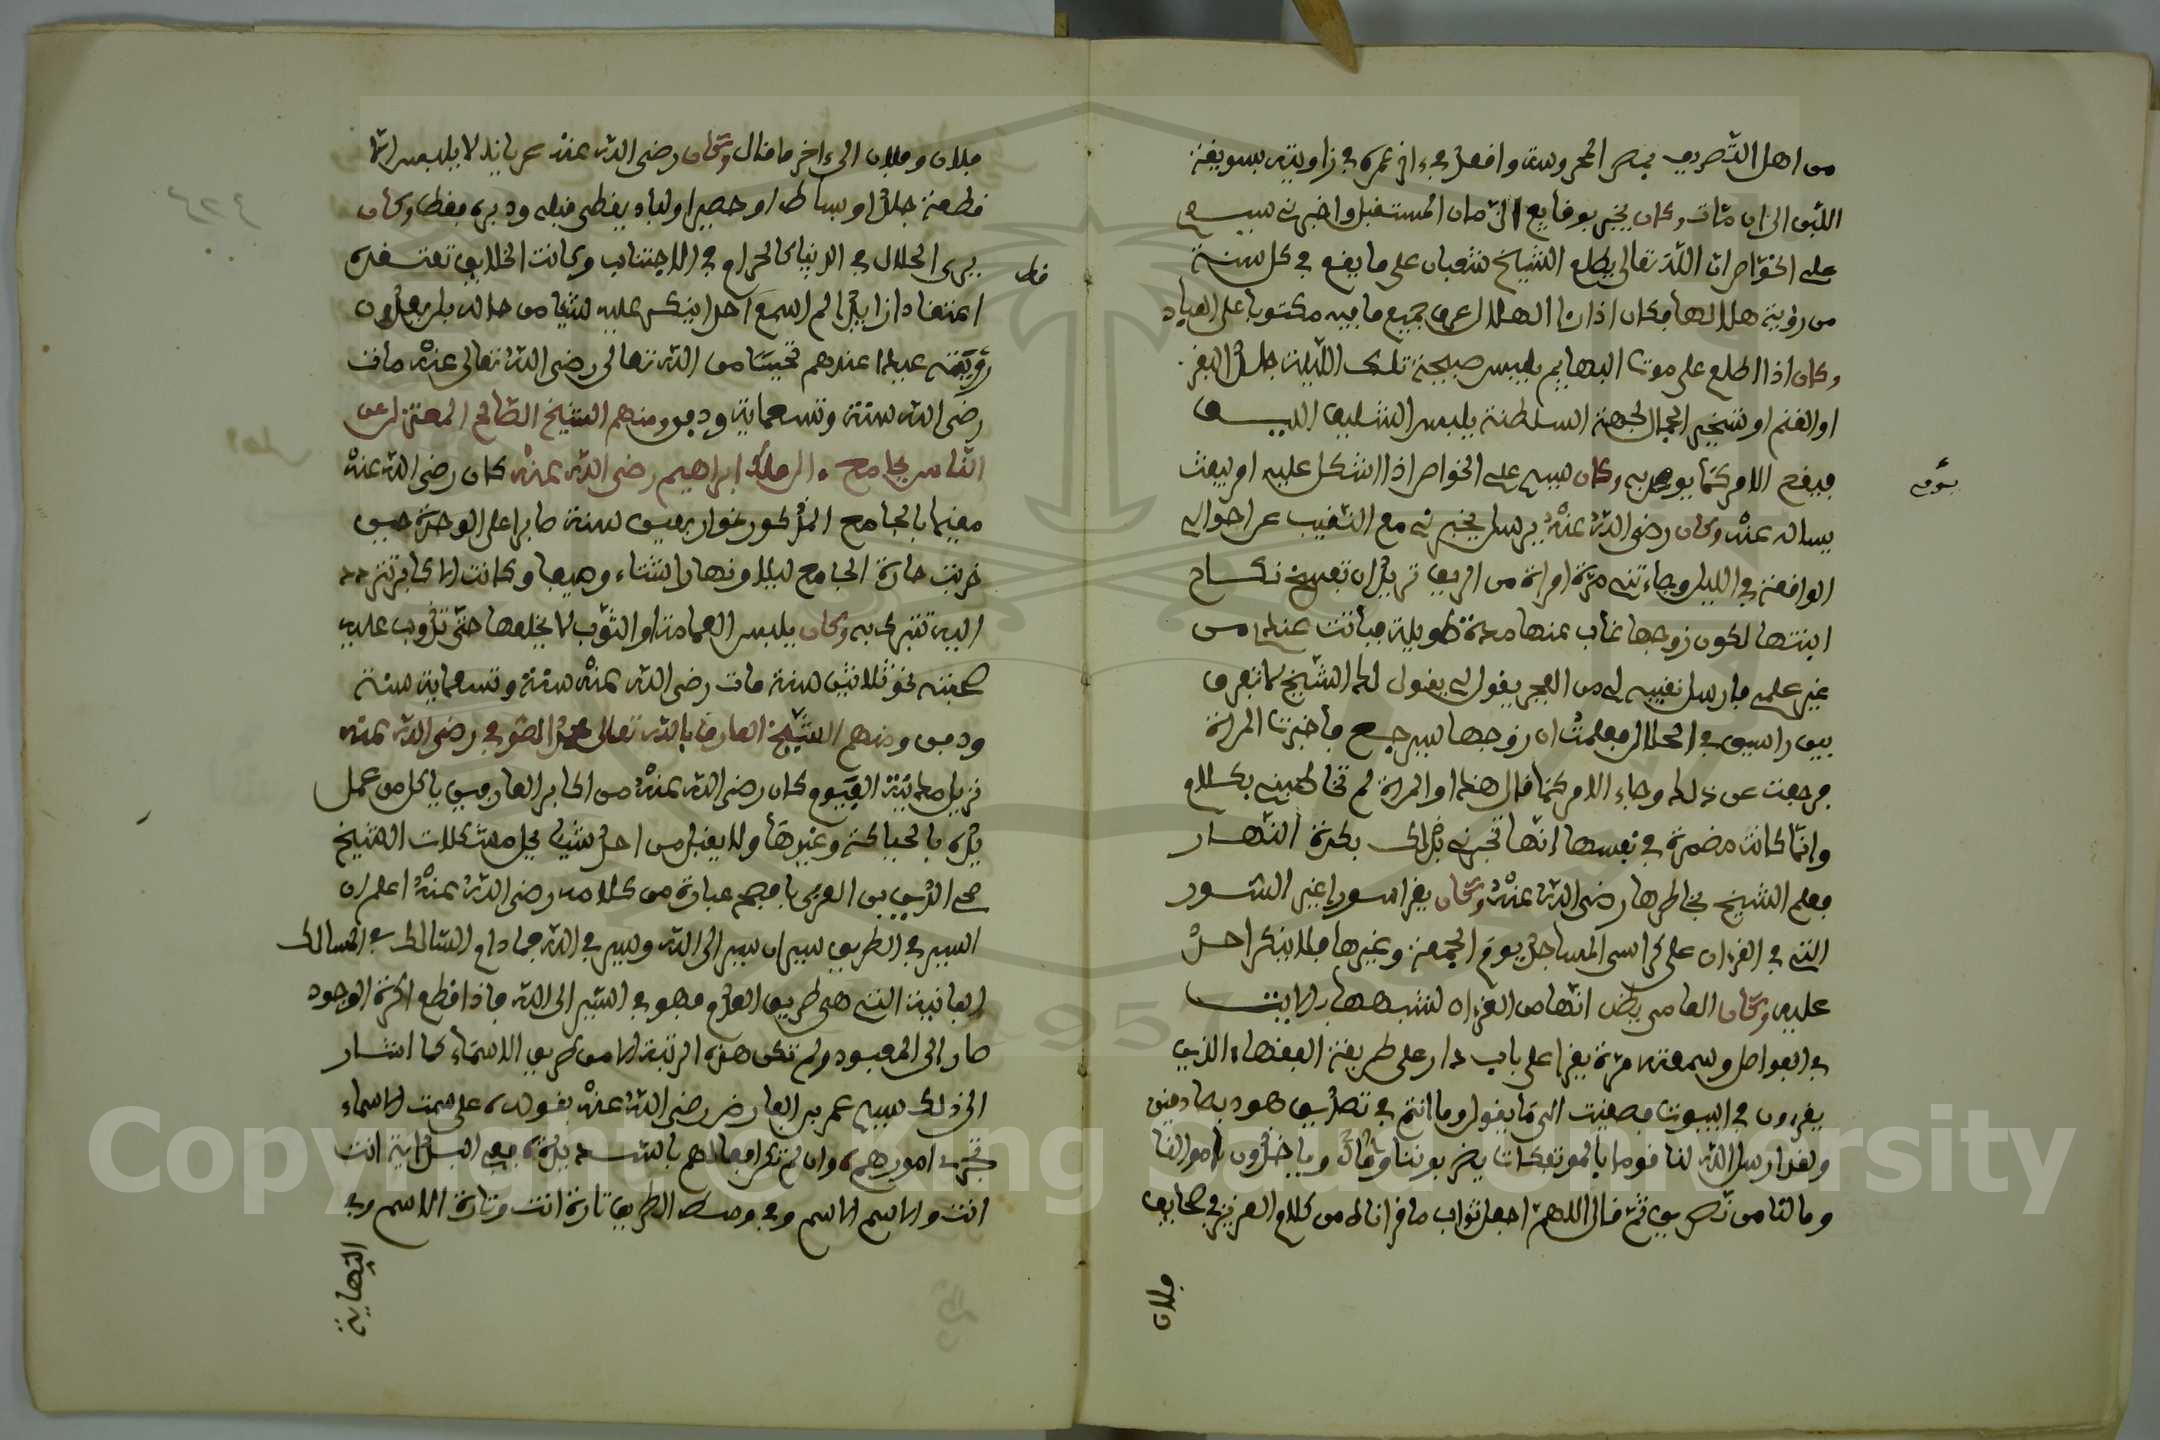 من اهل التصريف بمصر المحروسة واقعد في ءاخر عمره في زاويته بسويقة
اللبن الى ان مات وكان يخبر بوقايع الزمان المستقبل واخبرني سيدي
علي الخواص ان الله تعالى يطلع الشيخ شعبان على ما يقع في كل سنة
من رؤية هلالها فكان اذا راى الهلال عرف جميع ما فيه مكتوبا على العباد
وكان اذا اطلع على موت البهايم يلبس صبيحة تلك الليلة جلد البقر
او الغنم او تسخير الجمال لجهة السلطنة يلبس الشليف الليف
فيقع الامر كما يوجد به وكان سيدي علي الخواص اذا اشكل عليه امر يبعث
يساله عنه وكان رضي الله عنه يرسل يخبرني مع النقيب عن احوالي
الواقعة في الليل وجاءتني مرة امراة من الريف تريد ان تفسخ نكاح
ابنتها لكون زوجها غاب عنها مدة طويلة فباتت عندي من
غير علمي فارسل نقيبه لي من الفجر يقول لي يقول لك الشيخ لا تفرق
بين راسين في الحلال فعلمت ان زوجها سيرجع فاخبرت المراة
فرجعت عن ذلك وجاء الامر كما قال هذا والمراة لم تخاطبني بكلام
وانما كانت مضمرة في نفسها انها تخبرني بذلك بكرة النهار
فعلم الشيخ بخاطرها رضي الله عنه وكان يقرا سورا غير السور
التي في القرءان على كراسي المساجد يوم الجمعة وغيرها فلا ينكر احد
عليه وكان العامي يظن انها من القرءان لشبهها بالايات
في الفواصل وسمعته مرة يقرا على باب دار على طريقة الفقهاء الذين
يقرءون في البيوت فصغيت الى ما يقول وما انتم في تصديق هود بصادقين
ولقد ارسل الله لنا قوما بالموتفكات يضربوننا وياخذون اموالنا
وما لنا من ناصرين ثم قال اللهم اجعل ثواب ما قراناه من كلام العزيز في صحايف
فلان
يؤمر
فلان وفلان الى ءاخر ما قال وكان رضي الله عنه عريانا لا يلبس الا
قطعة جلد او بساط او حصير او لباد يغطي قبله ودبره فقط وكان
يرى الحلال في الدنيا كالحرام في الاجتناب وكانت الخلايق تعتقده
اعتقادا زايدا لم اسمع احدا ينكر عليه شيئا من حاله بل يعدون
رؤيته عيدا عندهم تحننا من الله تعالى رضي الله تعالى عنه مات
رضي الله سنة وتسعماية ودفن ومنهم الشيخ الصالح المعتزل عن
الناس بجامع الملك ابراهيم رضي الله عنه كان رضي الله عنه
مقيما بالجامع المذكور نحو اربعين سنة صابرا على الوحدة حين
خربت حارة الجامع ليلا ونهارا شتاء وصيفا وكانت الاكابر تتردد
اليه تتبرك به وكان يلبس العمامة او الثوب لا يخلعها حتى تذوب عليه
صحبته نحو ثلاثين سنة مات رضي الله عنه سنة وتسعماية سنة
ودفن ومنهم الشيخ العارف بالله تعالى محمد الصوفي رضي الله عنه
نزيل مدينة الفيوم وكان رضي الله عنه من اكابر العارفين ياكل من عمل
يده بالحياكة وغيرها ولا يقبل من احد شيئا يحل مشكلات الشيخ
محي الدين بن العربي بافصح عبارة من كلامه رضي الله عنه اعلم ان
السير في الطريق سيران سير الى الله وسير في الله فما دام السالك في المسالك
الفانية التي هي طريق العدم فهو في السير الى الله فاذا قطع اكرة الوجود
صار الى المعبود ولم تكن هذه الرتبة الا من طريق الاسماء كما اشار
الى ذلك سيدي عمر بن الفارض رضي الله عنه بقوله على سمت الاسماء
تجري امورهم وان لم تكن افعالهم بالسديدة ففي البداية انت
انت والاسم الاسم وفي وسط الطريق تارة انت وتارة الاسم وفي
النهاية
قط